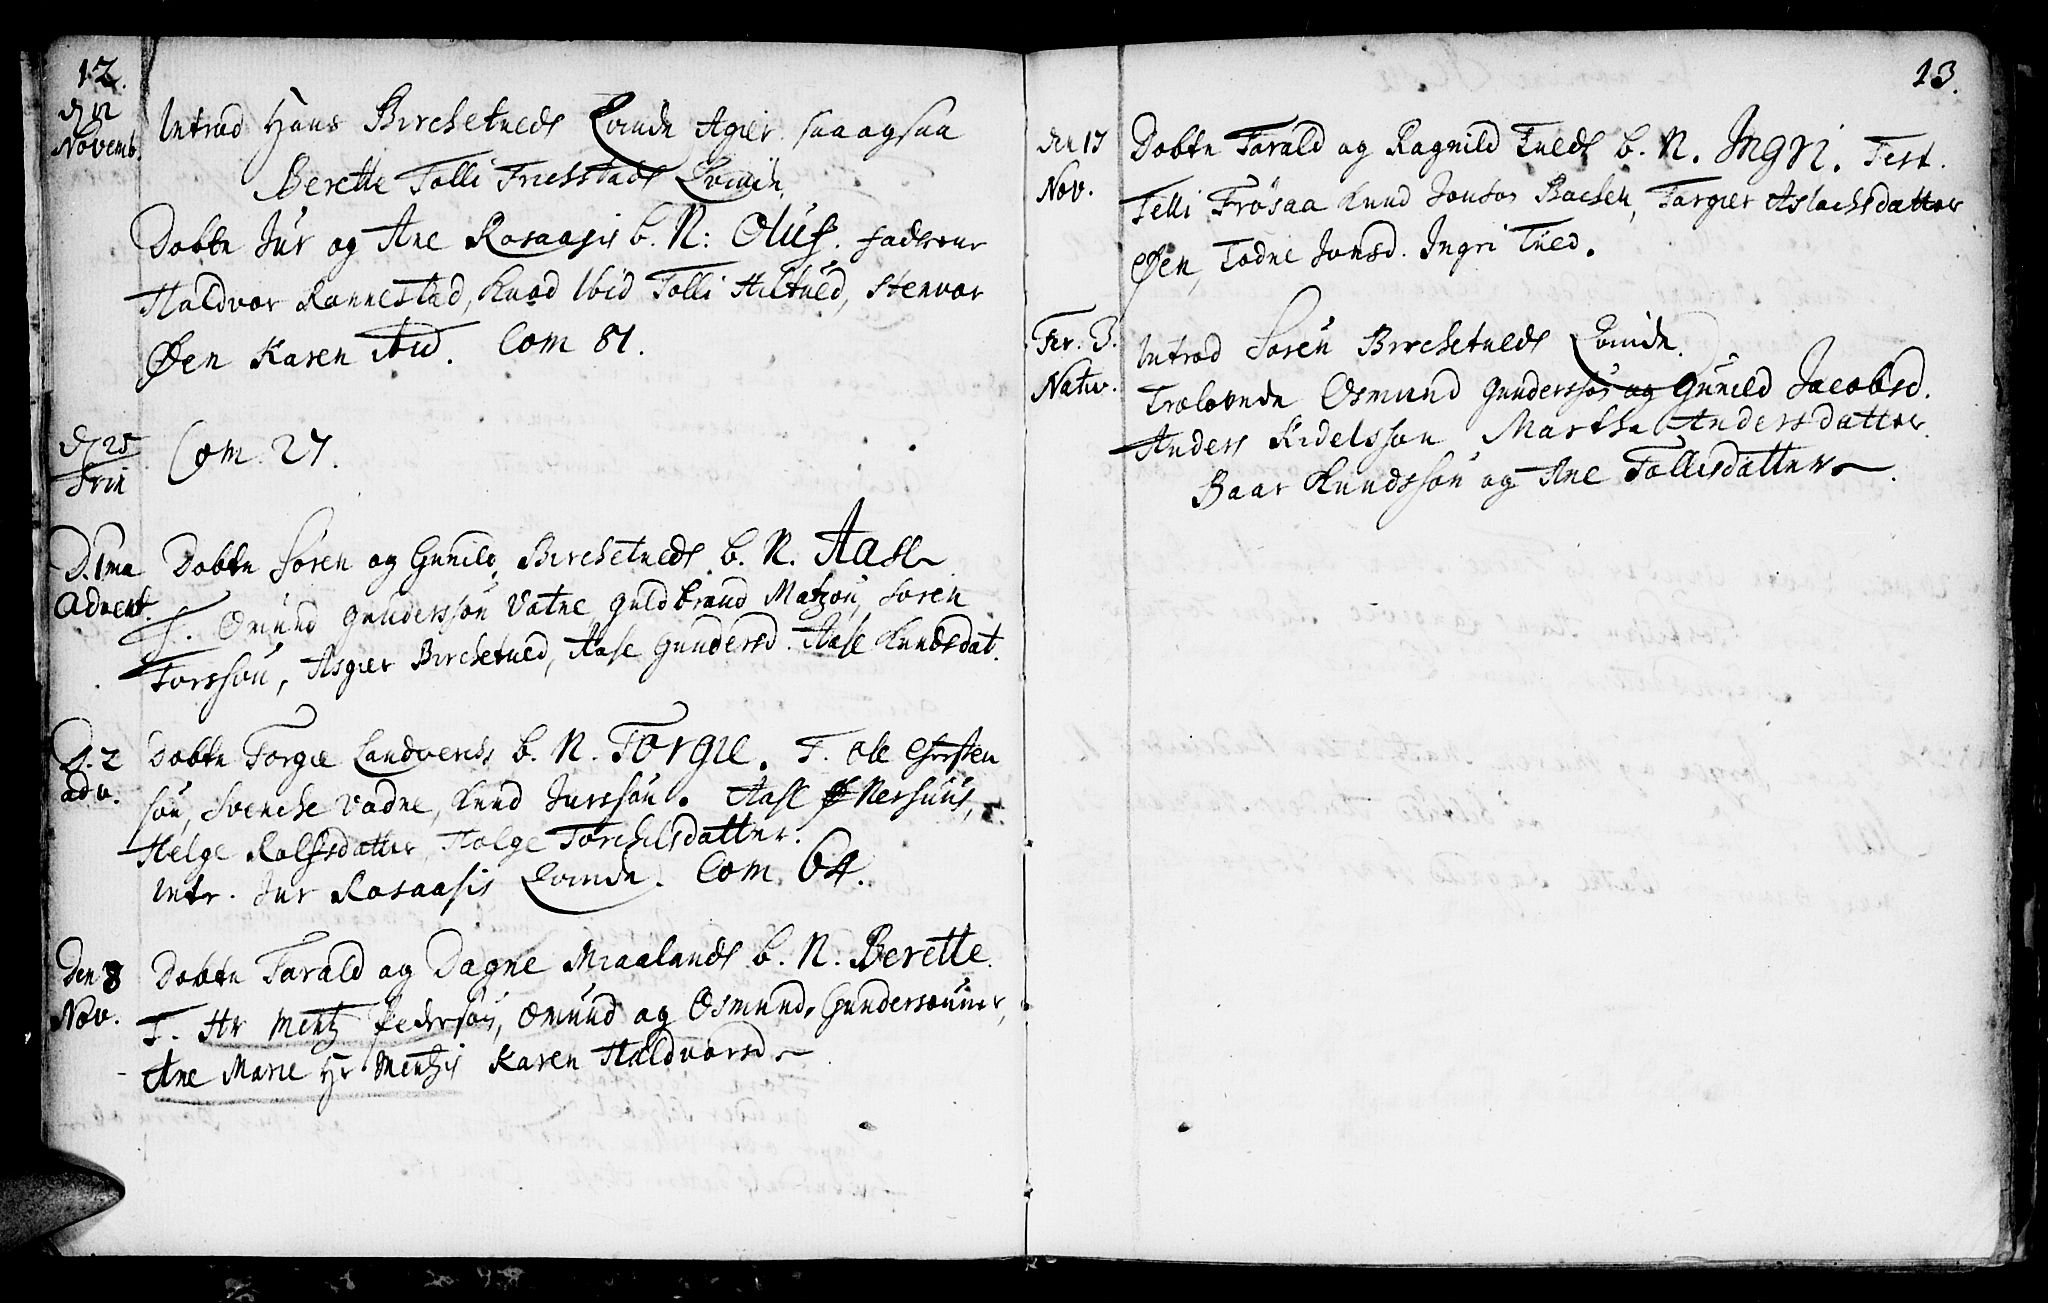 12.
d 12 Novemb. Introd Hans Birchetveds Qvinde Agier saa og saa
Berette Tolli Friestads Qvinde
Døbte Jur og Ane Rosaasis b. N: Oluf. fadrene
Haldvor Rannestad, Knud Ibid Tolli Hiltved, Stenvor
Øen Karen ibid. Com 81.
d 25 Trin Com. 27.
D. 1ma Advent. Døbte Søren og Gunild Birchetveds b. N. Aase
T. Omund Gundersøn Vatne Guldbrand Matzøn, Søren
Torssøn, Asgier Birchetved, Aase Gundersd. Aase Knudsdat.
D. 2 adv. Døbte Torgie Landverks b. N. Torgie. T. Ole Christen
søn, Svenche Vadne, Knud Jurssøn. Aase Nershuus,
Helge Rolfsdatter, Helge Torchelsdatter.
Intr. Jur Rosaasis Qvinde. Com 64.
Den 8 Nov. Døbte Tarald og Dagne Miaalands b. N. Berette.
T. Hr Mentz Pedersøn, Omund og Osmund Gundersønner,
Ane Marie Hr Mentzis Karen Haldvorsd
13.
den 17 Nov. Døbte Tarald og Ragnild Tveds b. N. Ingri. Test.
Telli Frøsaa Knud Jonsøn Bachen, Targier Aslachsdatter
Øen, Todne Jonsd. Ingri Tved.
Fer. 3. Nativ. Introd Søren Birchetveds Qvinde.
Trolovede Osmund Gunderssøn og Gunild Jacobsd.
Anders Kidelssøn Martha Andersdatter.
Baar Knudssøn og Ane Tollisdatter